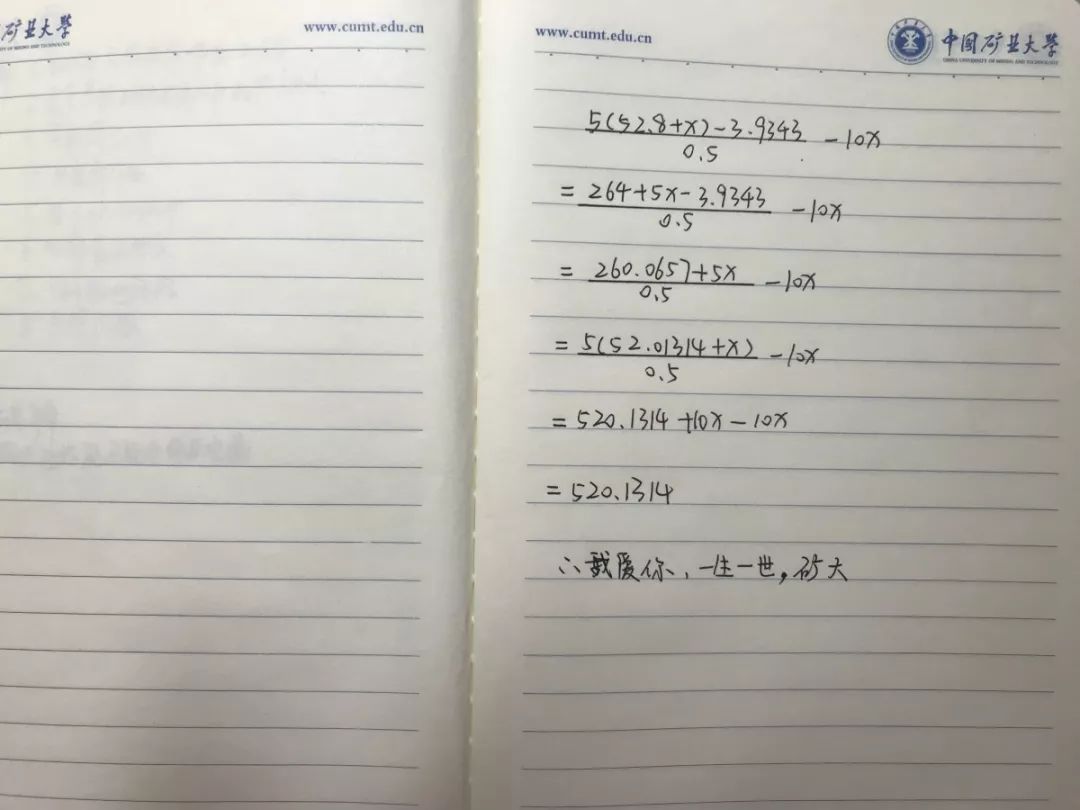 矿业大学
www.cumt.edu.cn
www.cumt.edu.cn
中国矿业大学
CHINA UNIVERSITY OF MINING AND TECHNOLOGY
5(52.8+x)-3.9343
0.5
-10x
= 264+5x-3.9343
0.5
-10x
= 260.0657+5x
0.5
-10x
= 5(52.01314+x)
0.5
-10x
= 520.1314+10x-10x
= 520.1314
∴我爱你、一生一世,矿大